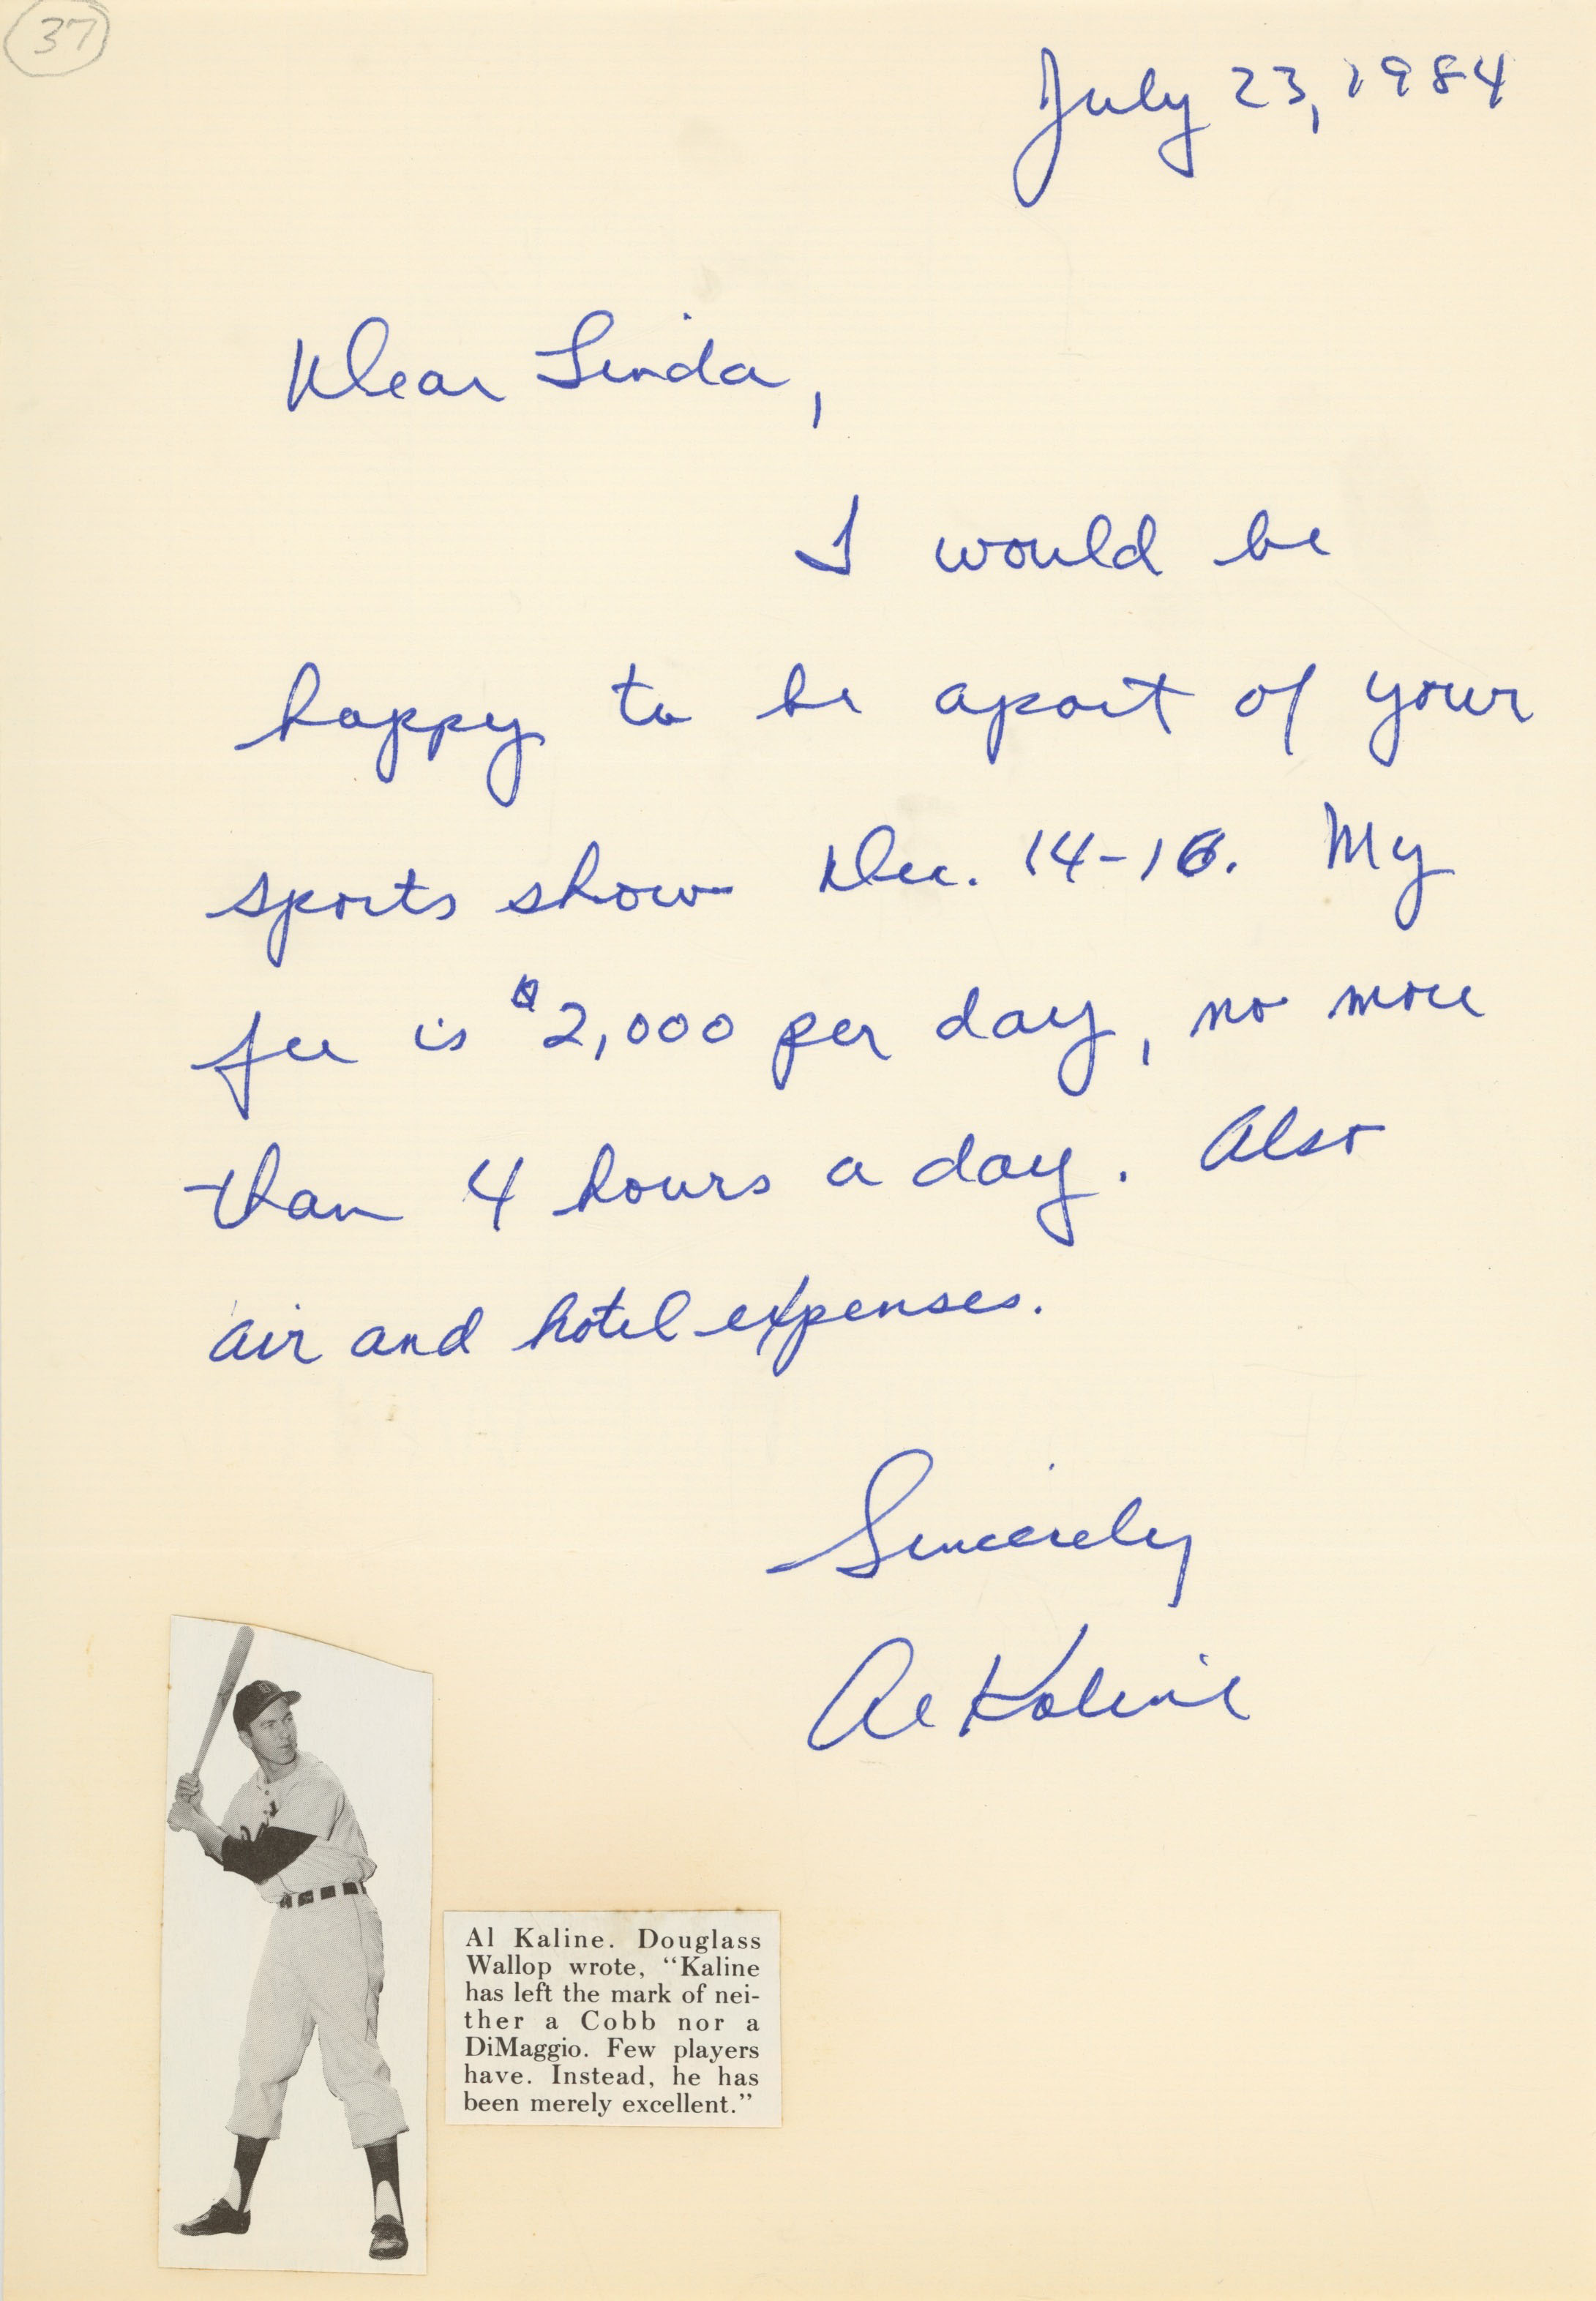 37
July 23, 1984
Dear Linda,
I would be
happy to be apart of your
sports show Dec. 14-16. My
fee is $2,000 per day, no more
than 4 hours a day. Also
air and hotel expenses.
Sincerely
Al Kaline
Al Kaline. Douglass
Wallop wrote, “Kaline
has left the mark of nei-
ther a Cobb nor a
DiMaggio. Few players
have. Instead, he has
been merely excellent.”